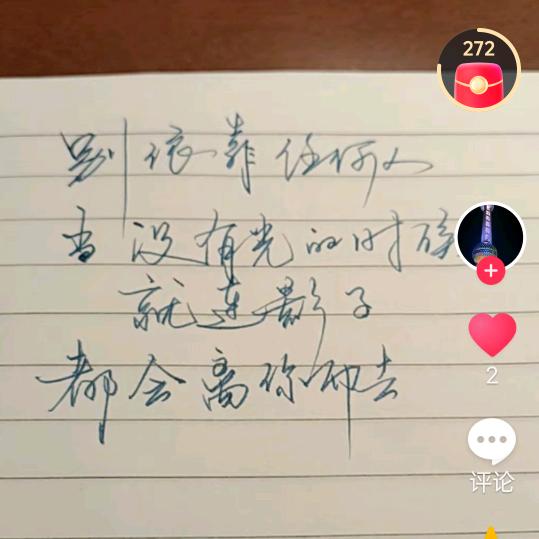 272
别依靠任何人
当没有光的时候
就连影子
都会离你而去
2
评论